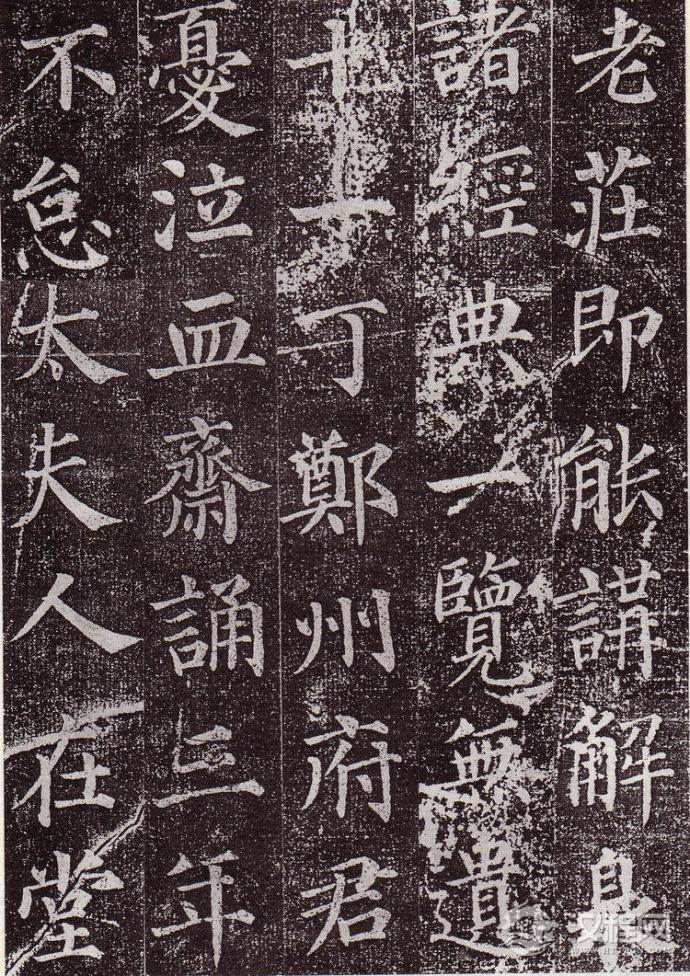 老莊即能講解
諸經典一覽無遺
十一丁鄭州府君
憂泣血齋誦三年
不怠太夫人在堂
汉程网